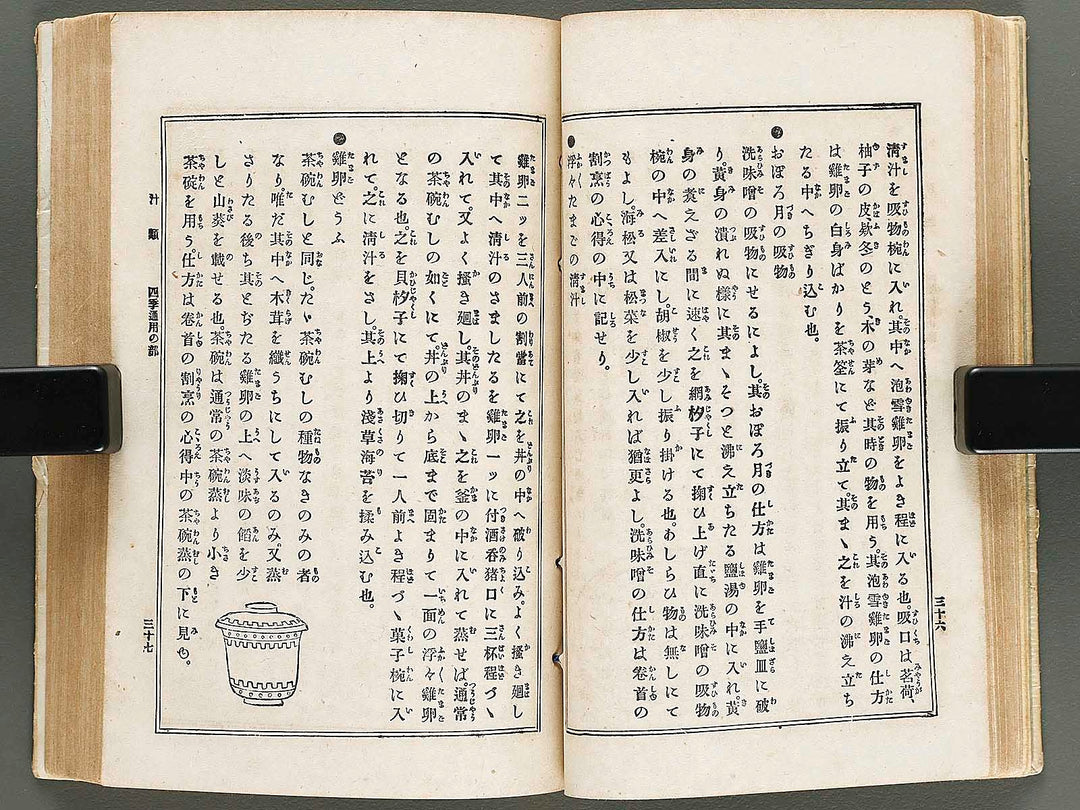 清汁を吸物椀に入れ。其中へ泡雪雞卵をよき程に入る也。吸口は茗荷、
柚子の皮、欵冬のとう、木の芽など其時の物を用う。其泡雪雞卵の仕方
は雞卵の白身ばかりを茶筌にて振り立て。其まゝ之を汁の沸え立ち
たる中へちぎり込む也。
おぼろ月の吸物
洗味噌の吸物にせるによし。其おぼろ月の仕方は雞卵を手鹽皿に破
り。黄身の潰れぬ樣に其まゝそつと沸え立ちたる鹽湯の中に入れ。黄
身の煑えざる間に速く之を網杓子にて掬ひ上げ直に洗味噌の吸物
椀の中へ差入にし。胡椒を少し振り掛ける也。あしらひ物は無しにて
もよし。海松又は松菜を少し入れば猶更よし。洗味噌の仕方は卷首の
割烹の心得の中に記せり。
浮々たまごの清汁
三十六
雞卵二ッを三人前の割當にて之を丼の中へ破り込み。よく搔き廻し
て其中へ清汁のさましたるを雞卵一ッに付酒呑猪口に三杯程づゝ
入れて。又よく搔き廻し。其丼のまゝ之を釜の中に入れて蒸せば。通常
の茶碗むしの如くにて。丼の上から底まで固まりて一面の浮々雞卵
となる也。之を貝杓子にて掬ひ切りて一人前よき程づゝ菓子椀に入
れて。之に清汁をさし。其上より淺草海苔を揉み込む也。
雞卵どうふ
茶碗むしと同じ。たゞ茶碗むしの種物なきのみの者
なり。唯だ其中へ木茸を纎うちにして入るのみ。又蒸
さりたる後ち其とぢたる雞卵の上へ淡味の餡を少
しと山葵を載せる也。茶碗は通常の茶碗蒸より小さき
茶碇を用う。仕方は卷首の割烹の心得中の茶碗蒸の下に見ゆ。
汁類　四季通用の部
三十七